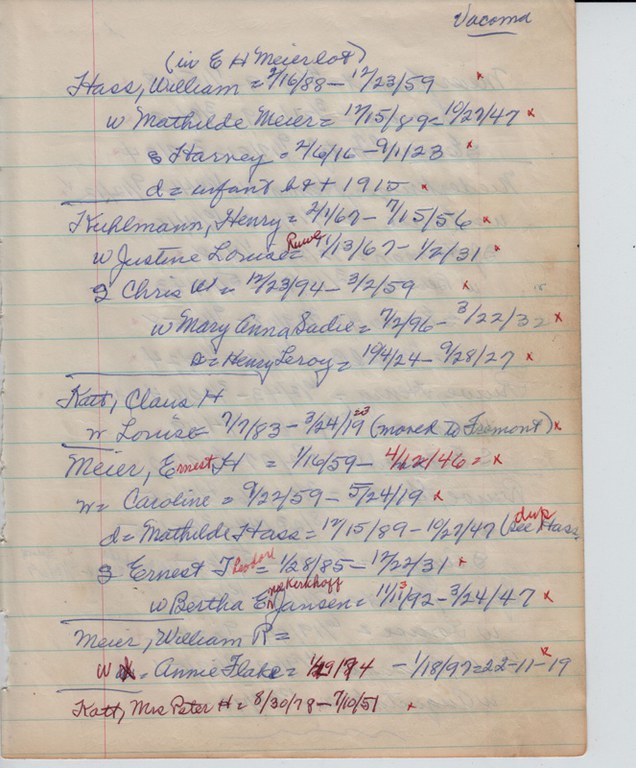 Vacoma
(in E H Meier lot)
Hass, William = 2/16/88 - 12/23/59 x
w Mathilde Meier = 12/15/89 - 10/27/47 x
s Harvey = 2/6/16 - 9/1/23 x
d = infant b&+ 1915 x
Kuhlmann, Henry = 2/1/67 - 7/15/56 x
w Justine Louise Ruwe = 11/13/67 - 1/2/31 x
S Chris W = 12/23/94 - 3/2/59 x
w Mary Anna Sadie = 7/2/96 - 3/22/32 x
s = Henry Leroy = 10/4/24 - 9/28/27 x
Katt, Claus H
w Louise 7/7/83 - 3/24/19 23 (moved to Fremont) x
Meier, Ernest H = 1/16/59 - 4/12/46 = x
w = Caroline = 9/22/59 - 5/24/19 x
d = Mathilde Hass = 12/15/89 - 10/27/47 (see Hass dup
S Ernest T = 1/28/85 - 12/22/31 x
w Bertha E Jansen nee Kerkhoff = 11/11/92 3 - 3/24/47 x
Meier, William R =
w = Annie Flake = 1/29/74 - 1/18/97 = 22-11-19 x
Katt, Mrs Peter H = 8/30/78 - 7/10/51 x